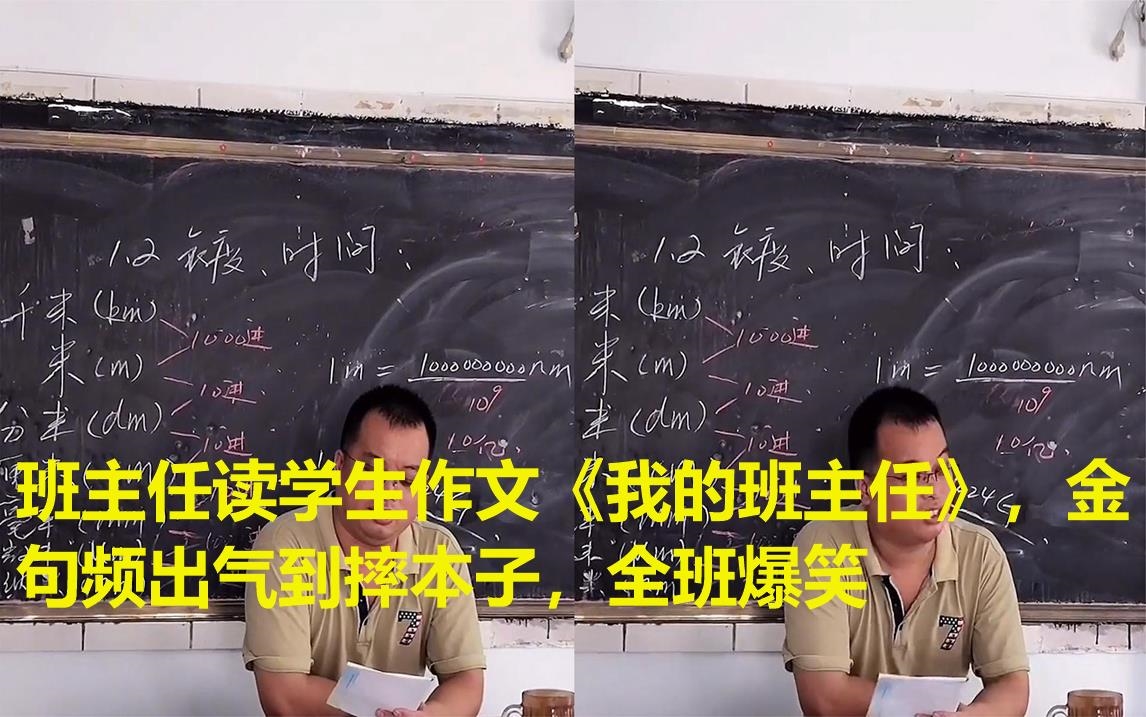 1.2 长度、时间：
千米(km)
1000进
米(m)
10进
分米(dm)
10进
1m = 1000000000nm
10⁹
10亿
班主任读学生作文《我的班主任》，金
句频出气到摔本子，全班爆笑
7
1.2 长度、时间：
米(km)
1000进
米(m)
10进
米(dm)
10进
1m = 1000000000nm
10⁹
10亿
24G
7